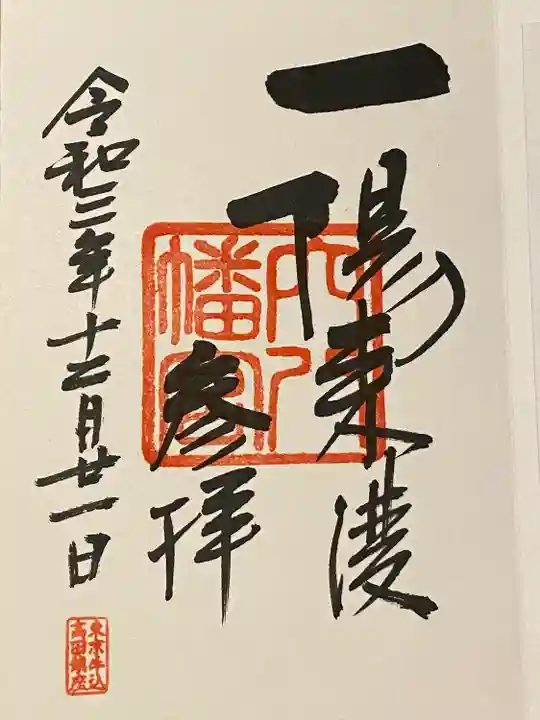 一陽来復
参拝
令和三年十二月廿一日
穴八
幡宮
東京牛込
高田鎮座